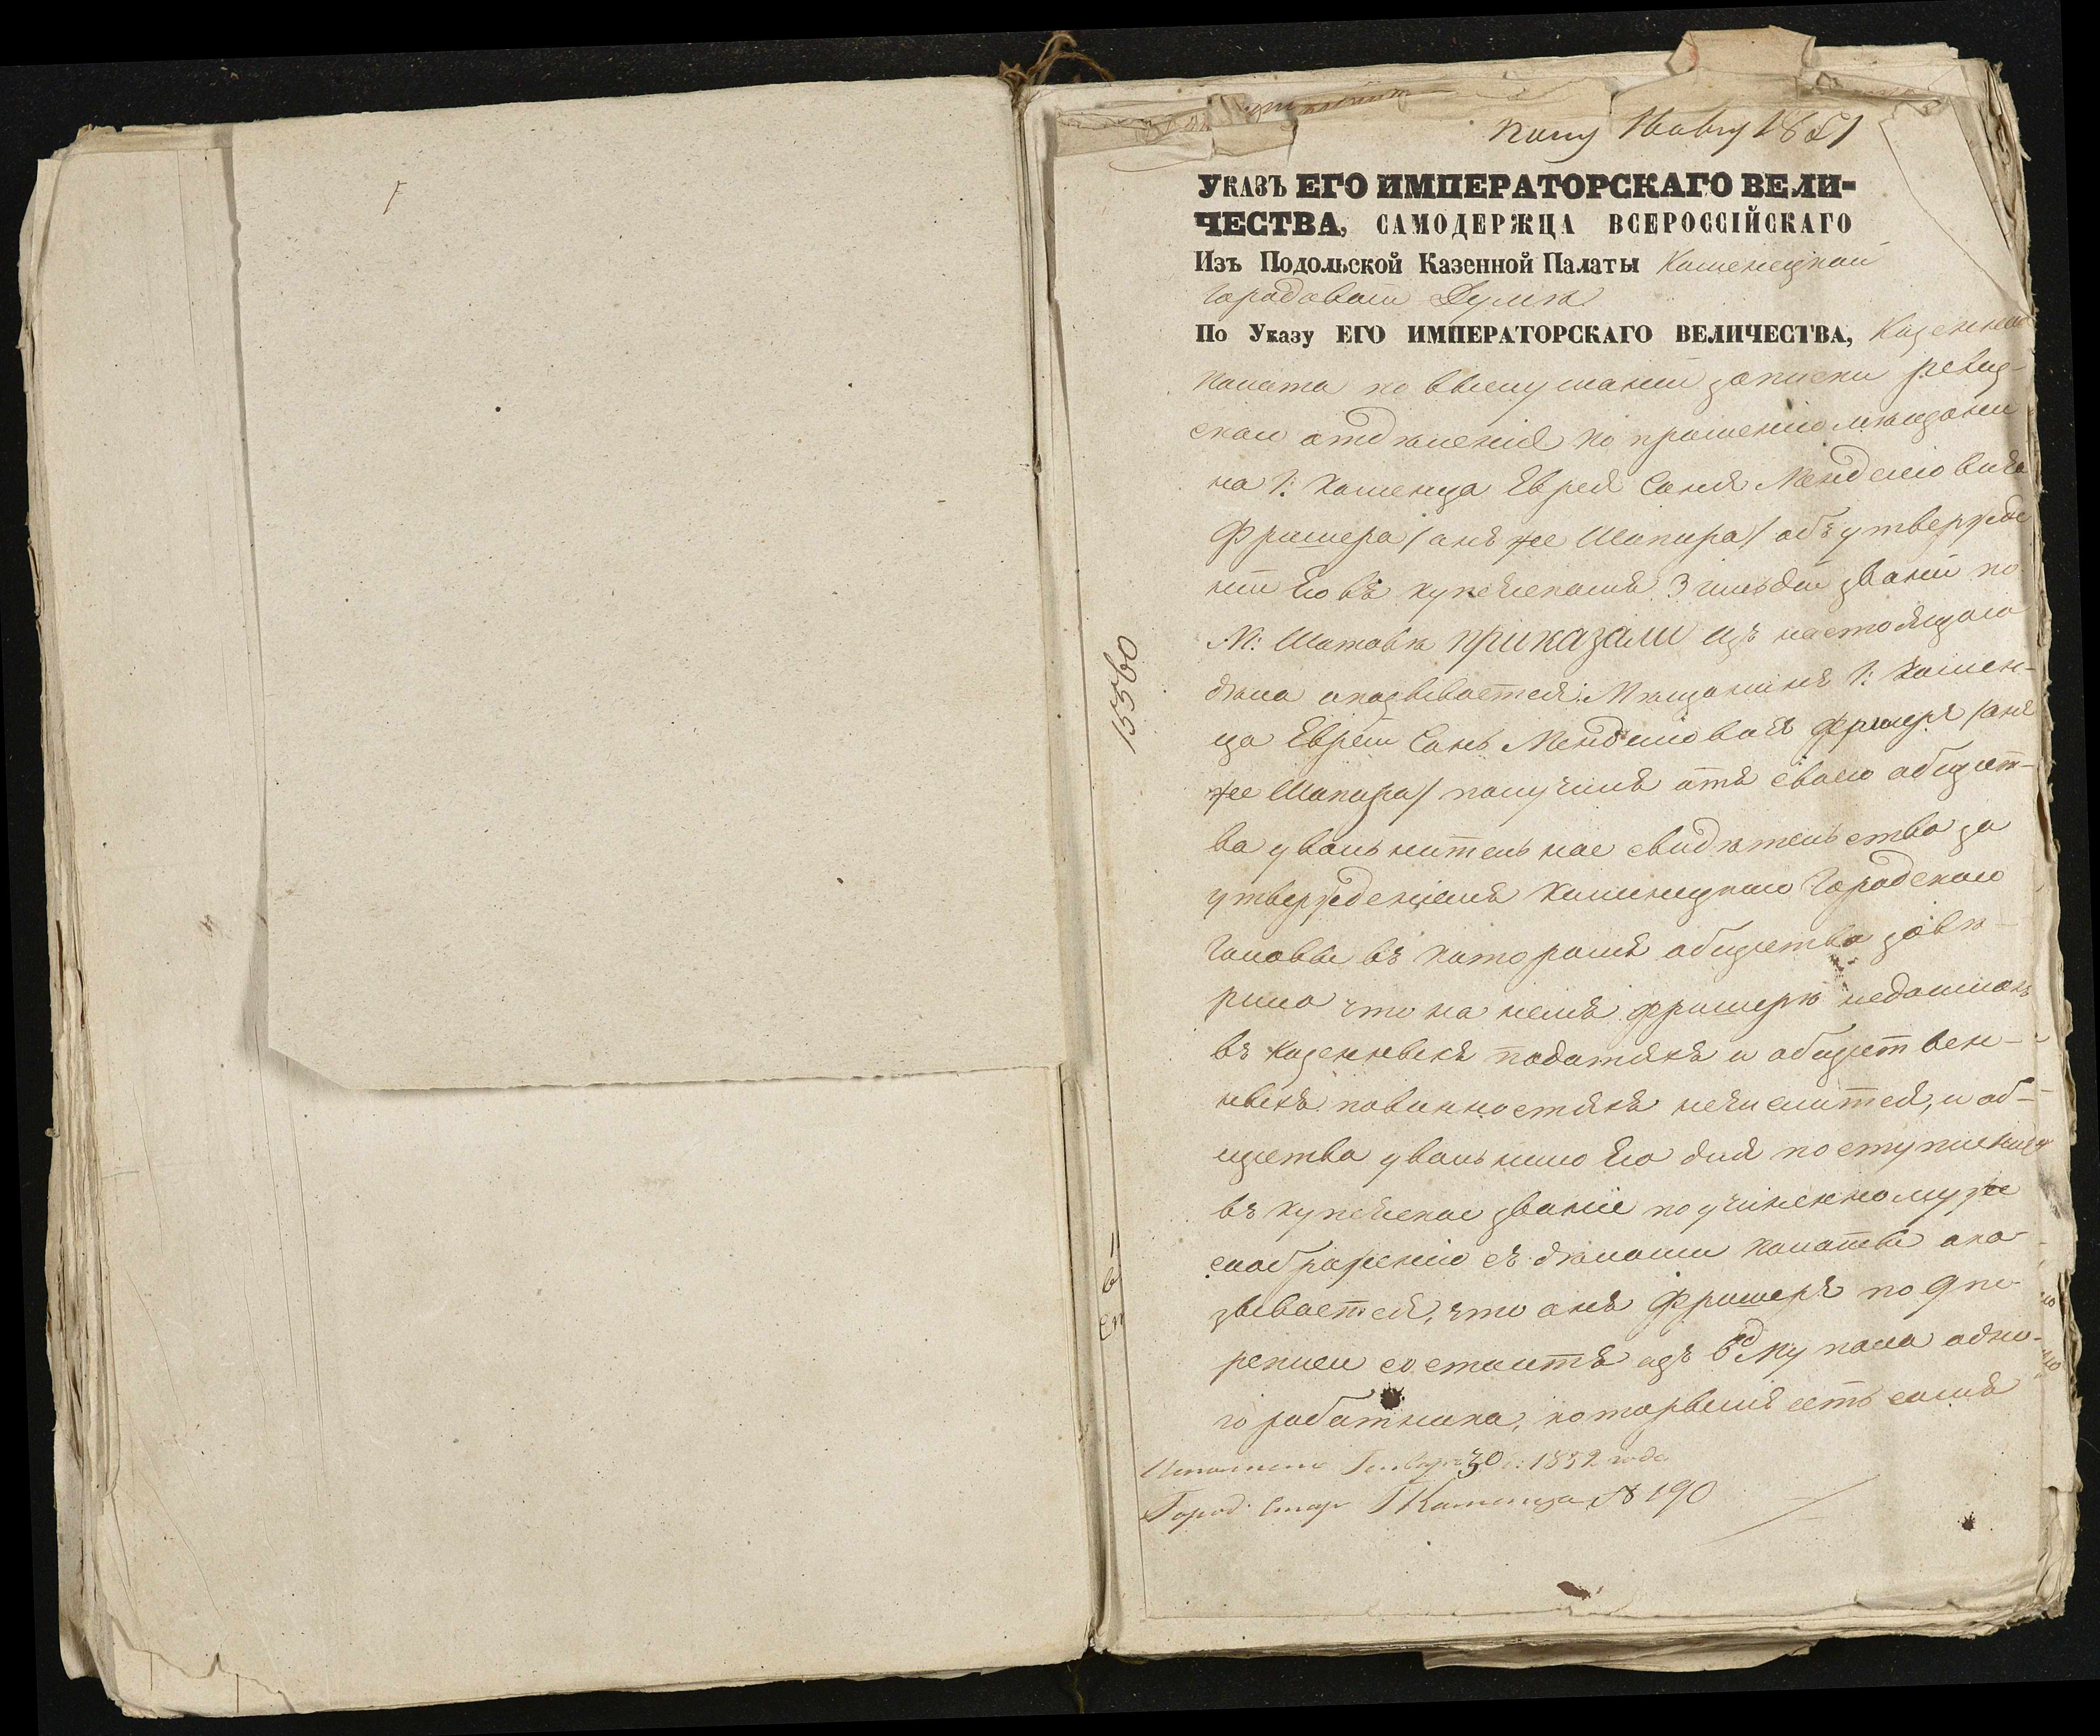 Пол: 1851
УКАЗЪ ЕГО ИМПЕРАТОРСКАГО ВЕЛИ-
ЧЕСТВА, САМОДЕРЖЦА ВСЕРОССІЙСКАГО
Изъ Подольской Казенной Палаты Каменецкой
Городовой Думѣ
По Указу ЕГО ИМПЕРАТОРСКАГО ВЕЛИЧЕСТВА, Казенная
палата по выслушаніи записки ревиз-
скаго отдѣленія по прошенію мѣщани
на Г: Каменца Еврея Саня Менделіовича
Фришера /онъ же Шапира/ объ утвержде
ніи Его въ купѣческомъ 3 гильдіи званіи по
М: Шатавѣ приказали изъ настоящаго
дѣла оказывается: Мѣщанинъ Г: Камен-
ца Еврей Сань Менделіовичъ Фришеръ /онъ
же Шапира/ получилъ отъ своего общест-
ва увольнительное свидѣтельство за
утвержденіемъ Каменецкаго Городскаго
Головы въ которомъ общество завѣ-
рило что на немъ Фришерѣ недоимокъ
въ казенныхъ податяхъ и обществен-
ныхъ повинностяхъ нечислится, и об-
щество увольнило Его для поступленія
въ купѣческое званіе по учиненному же
соображенію съ дѣлами палаты ока-
зывается, что онъ Фришеръ по 9 пе-
реписи состоитъ изъ 6 д. му пола одно-
го работника, которымъ есть самъ
Исполнено Генваря 30 1852 года
Город: Стар Г Каменца № 190
15560